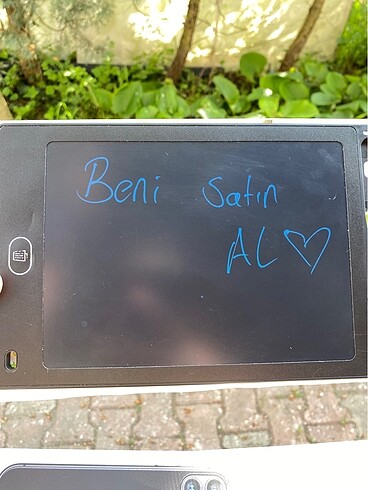 Beni Satın
AL♡